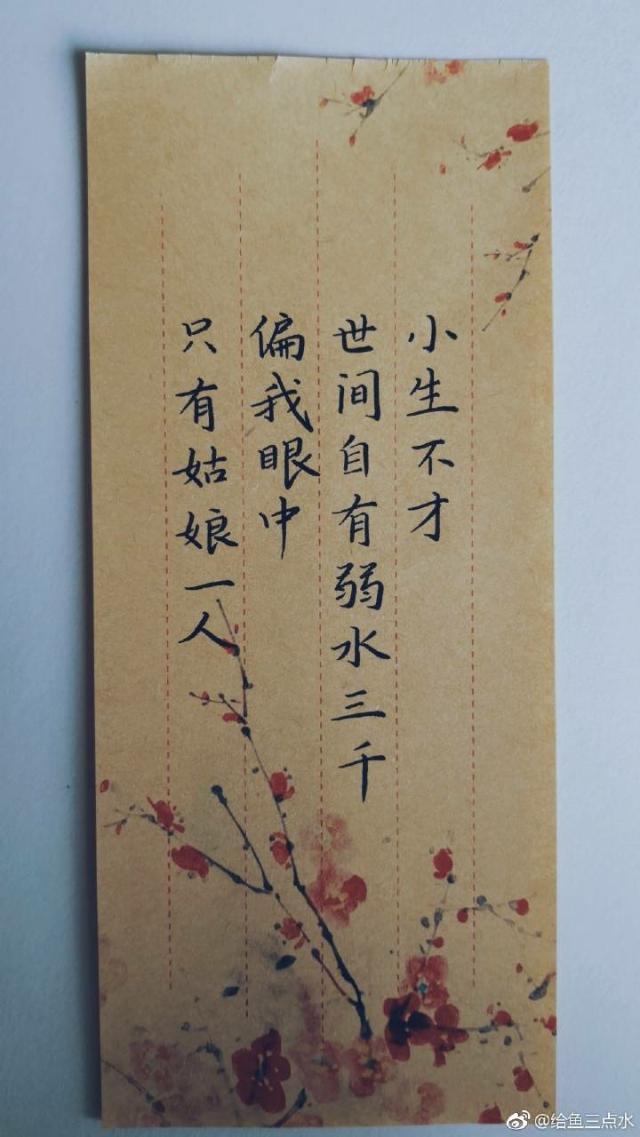 小生不才
世间自有弱水三千
偏我眼中
只有姑娘一人
@给鱼三点水